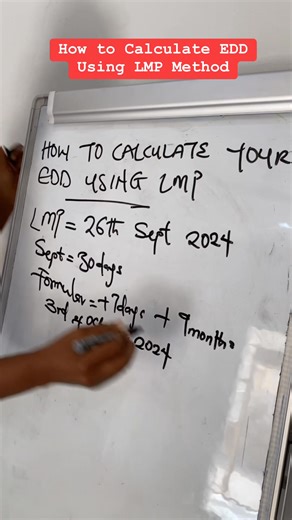 How to Calculate EDD
Using LMP Method
HOW TO CALCULATE YOUR
EDD USING LMP
LMP = 26th Sept 2024
Sept = 30days
Formular = +7days + 9months
3rd
2024